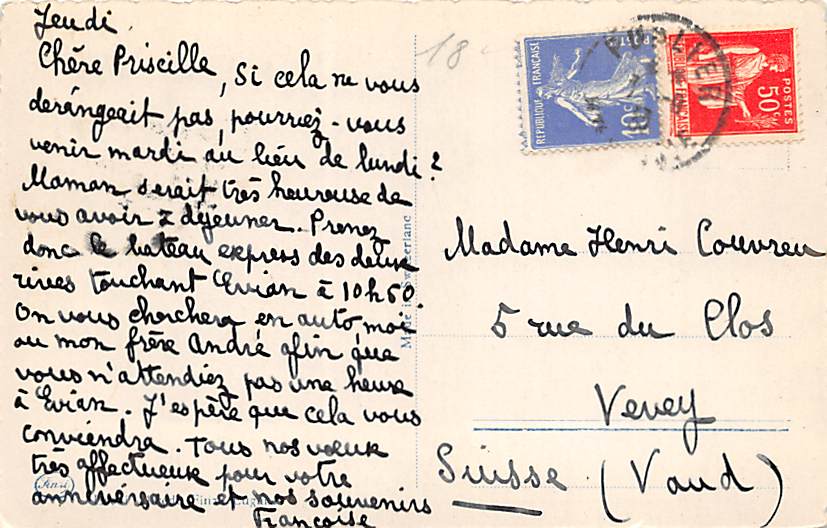 Jeudi
Chère Priscille, Si cela ne vous
derangeait pas, pourriez-vous
venir mardi au lieu de lundi?
Maman serait très heureuse de
vous avoir à déjeuner. Prenez
donc le bateau express des deux
rives touchant Evian à 10h50.
On vous cherchera en auto moi
ou mon frère André afin que
vous n'attendiez pas une heure
à Evian. J'espère que cela vous
conviendra. Tous nos vœux
très affectueux pour votre
anniversaire et nos souvenirs
Françoise
18
REPUBLIQUE FRANÇAISE
POSTES
50c
Madame Henri Couvreu
5 rue du Clos
Vevey
Suisse (Vaud)